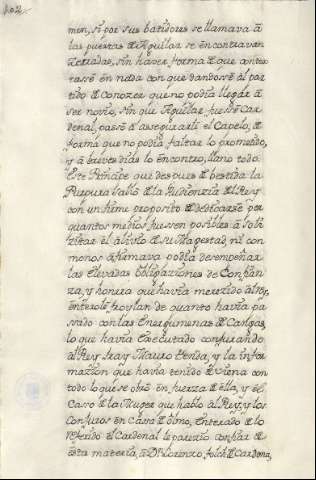 102
men, si por sus batidores se llamava â
las puertas de Aguilar se encontravan
Zerradas, sin haver forma de que contex
tasse en nada con que dandosse al par
tido de Conozer que no podia llegar â
ser novio, sin que Aguilar fuesse Car
denal, passò â assegurarle el Capelo, de
forma que no podia faltar lo prometido,
y â breves dias lo encontrò, llano todo.
Este Principe que despues de bestida la
Purpura saliò de la Audienzia del Rey
con un firme proposito de dedicarse por
quantos medios fuessen posibles â soli
zitar el alivio de su Magestad, ni con
menos afirmava podia desempeñar
las elevadas obligaziones de Confian
za, y honrra que havia merezido al Rey,
enterose de quanto havia pa
ssado con las Energumenas de Cangas,
lo que havia executado conjurando
al Rey Fray Mauro Tenda, y la infor
mazion que havia tenido de Viena con
todo lo que se obrò en fuerza de ella, y el
Caso de la Muger que hablò al Rey, y los
Conjuros en Casa de Olmo, enterado de lo
referido el Cardenal le pareziò confiar de
esta materia, â Dn. Lorenzo, folch de Cardona,